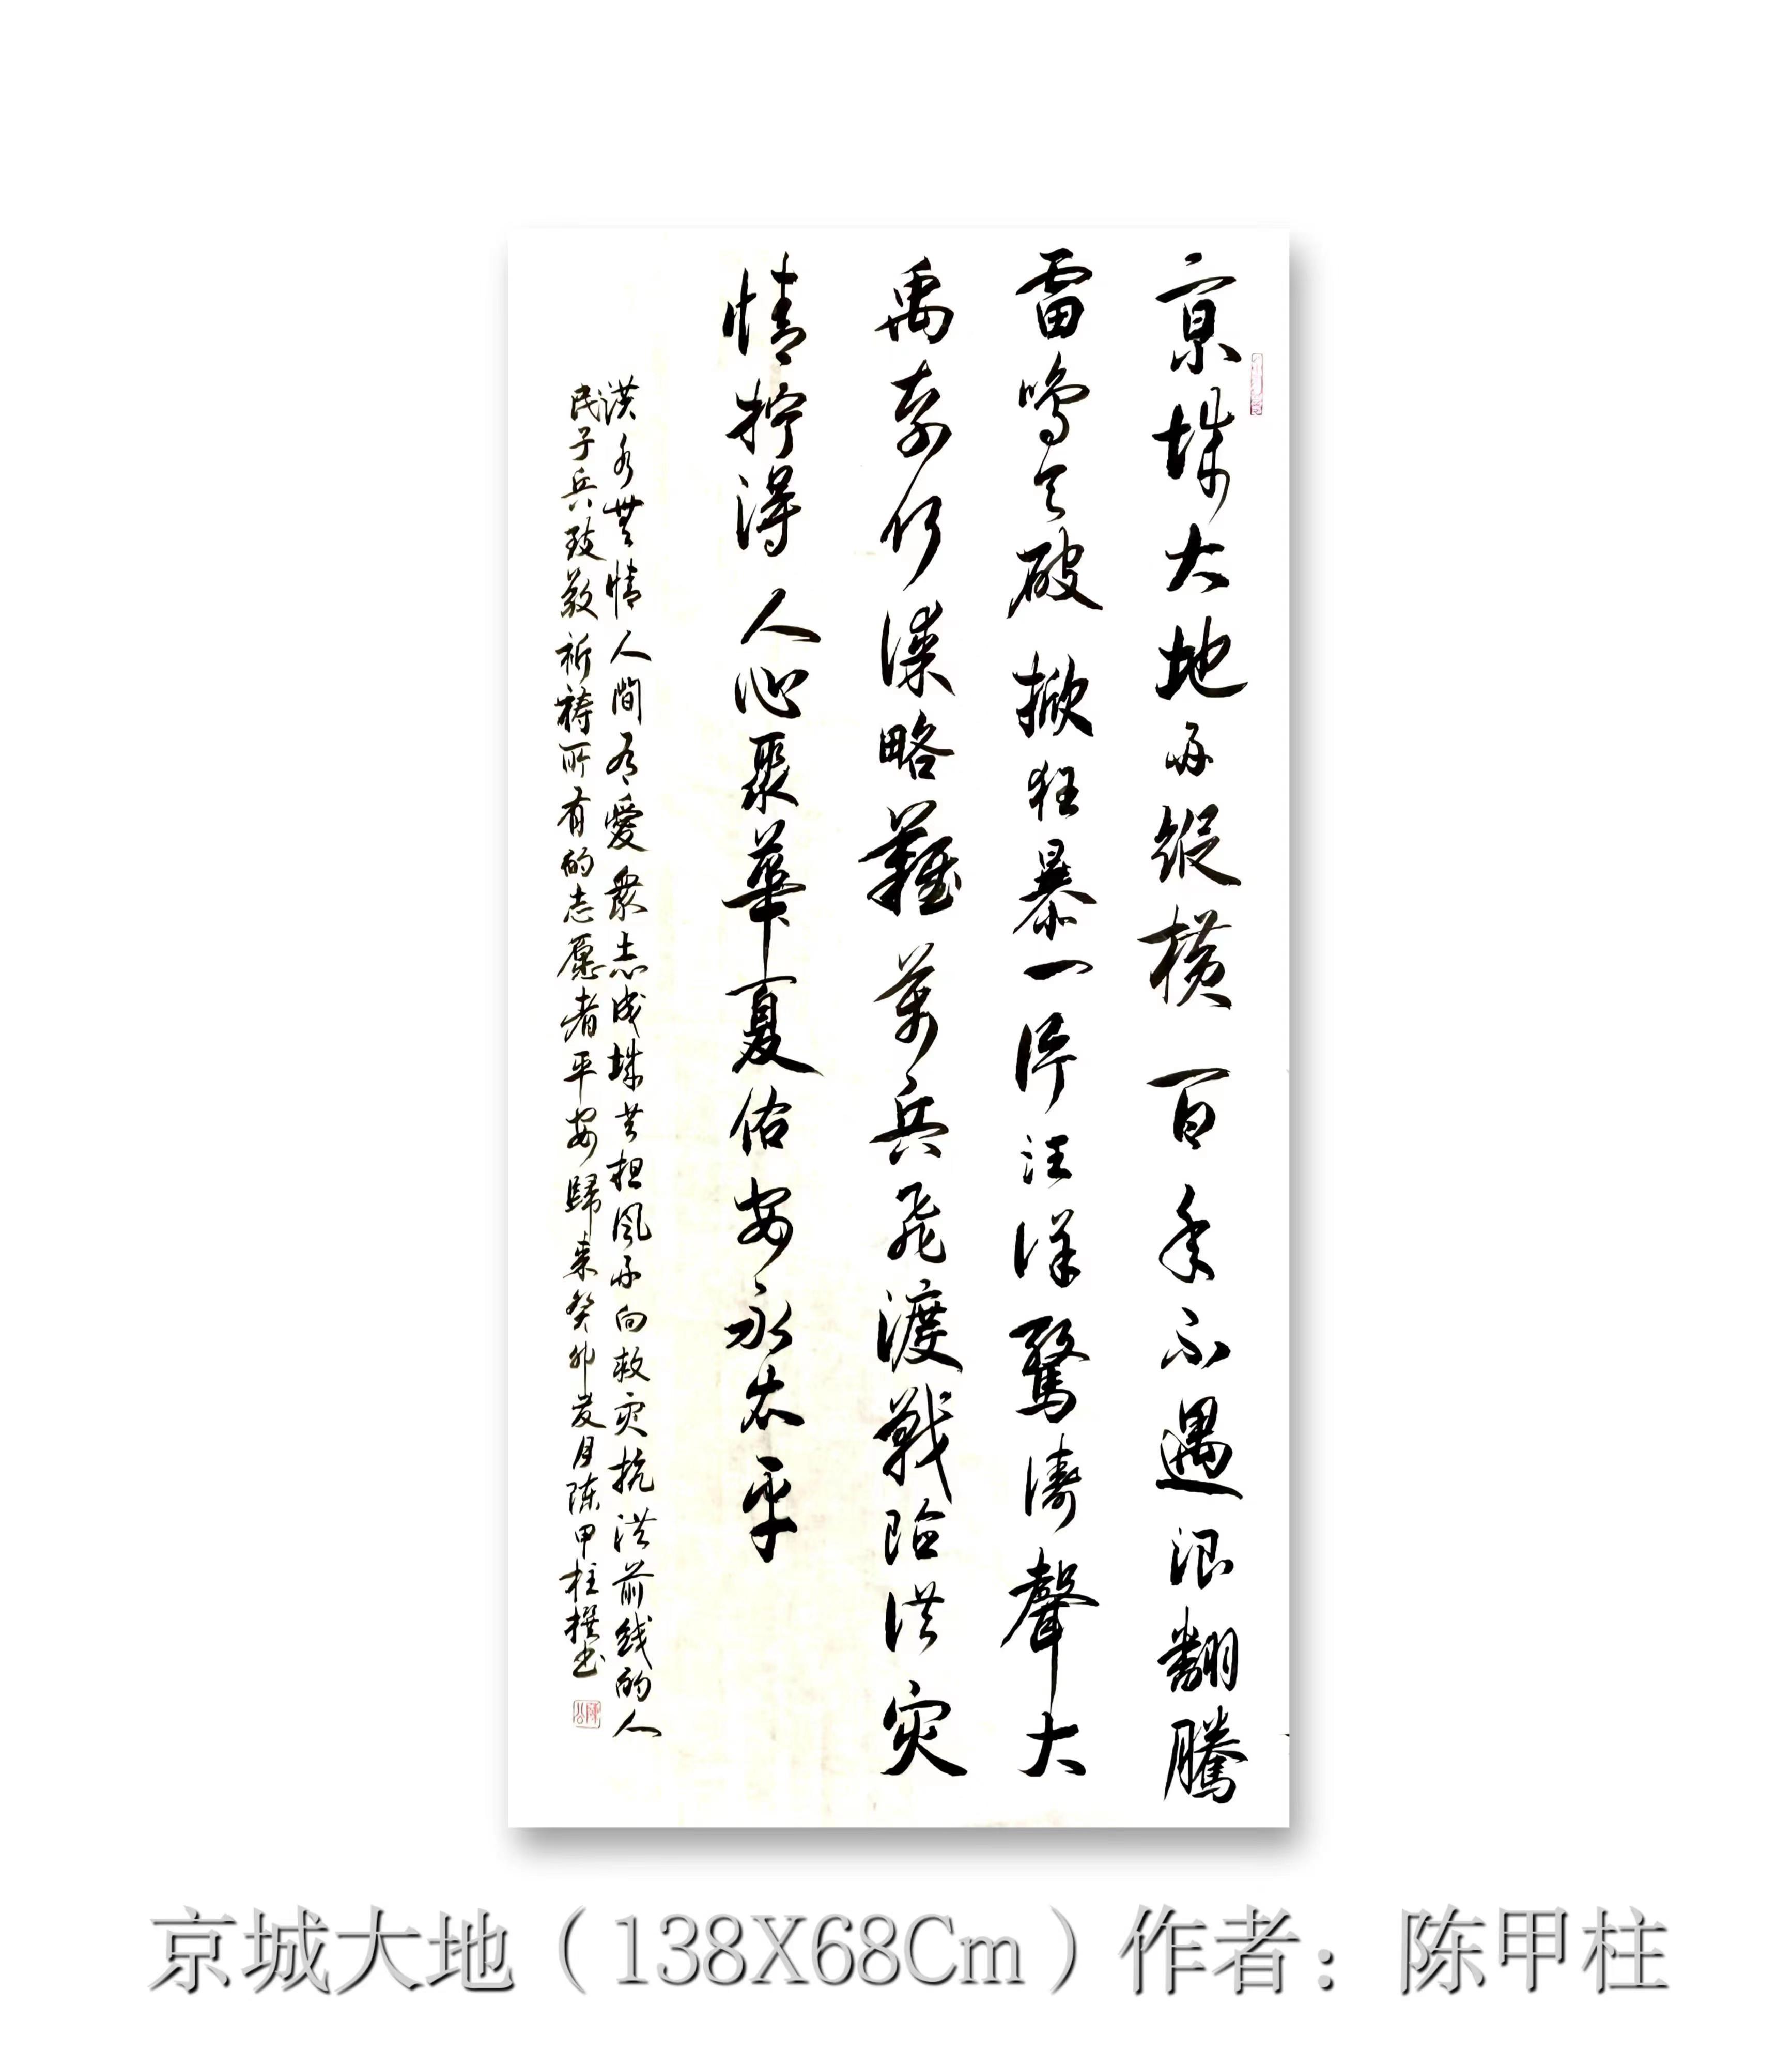 京城大地雨縱橫百年不遇浪翻騰
雷鳴天破掀狂暴一片汪洋驚濤聲大
禹奈何深略難萬兵飛渡戰險洪灾
情拧得人心聚華夏佑安永太平
洪水無情人間有愛衆志成城共担風雨向救灾抗洪前线的人
民子兵致敬祈祷所有的志愿者平安歸来癸卯岁月陈甲柱撰书
京城大地（138X68Cm）作者：陈甲柱